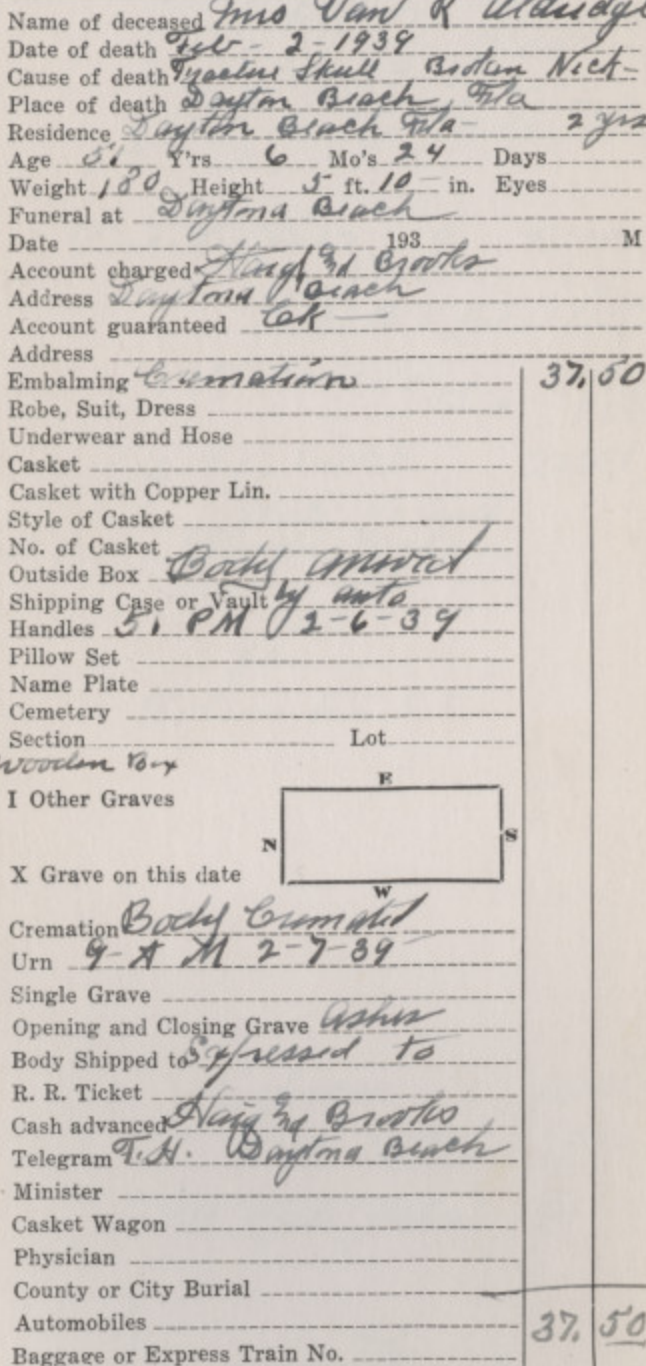 Name of deceased Mrs Van R Aldridge
Date of death Feb - 2 - 1939
Cause of death Fractue Skull Broken Nick -
Place of death Dayton Beach, Fla
Residence Dayton Beach Fla - 2 yrs
Age 51 Y'rs 6 Mo's 24 Days
Weight 180 Height 5 ft. 10 in. Eyes
Funeral at Daytona Beach
Date 193 M
Account charged Brooks
Address Daytona Beach
Account guaranteed Ok -
Address
Embalming Cremation 37.50
Robe, Suit, Dress
Underwear and Hose
Casket
Casket with Copper Lin.
Style of Casket
No. of Casket
Outside Box Body arrived
Shipping Case or Vault by auto
Handles 5. PM 2-6-39
Pillow Set
Name Plate
Cemetery
Section Lot
Wooden Box
E
I Other Graves
N S
X Grave on this date
W
Cremation Body Cremated
Urn 9 - A M 2-7-39
Single Grave
Opening and Closing Grave Ashes
Body Shipped to Expressed to
R. R. Ticket
Cash advanced Brooks
Telegram F.H. Daytona Beach
Minister
Casket Wagon
Physician
County or City Burial
Automobiles 37.50
Baggage or Express Train No.